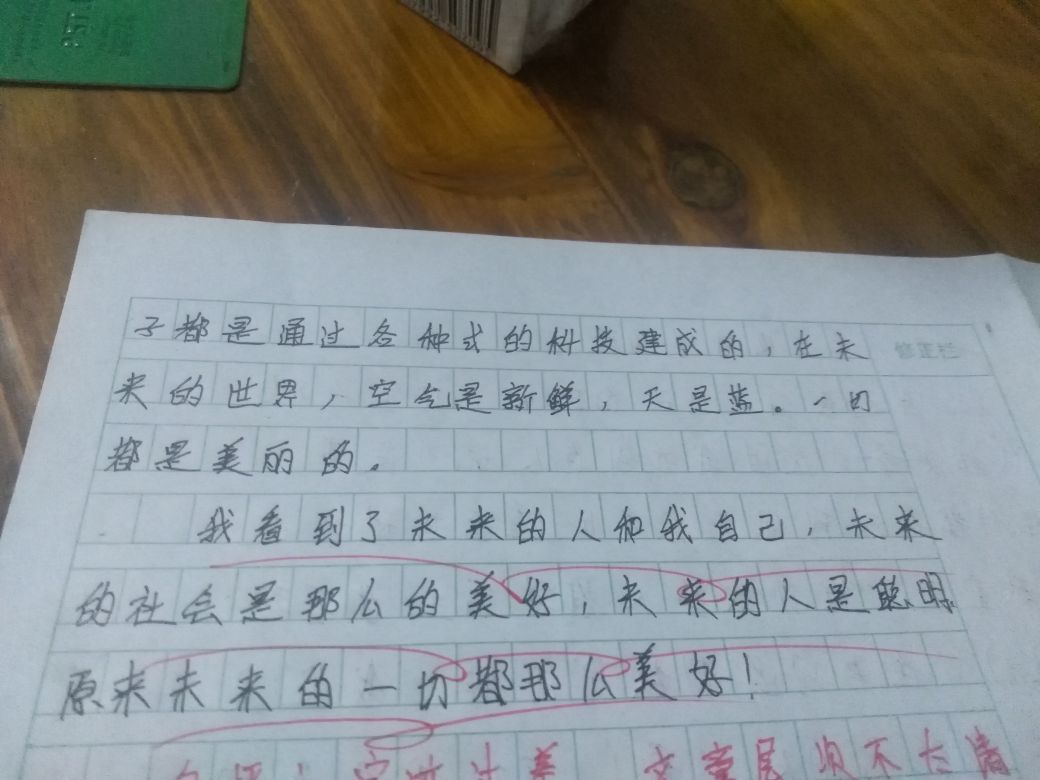 子都是通过各种式的科技建成的，在未
修正栏
来的世界，空气是新鲜，天是蓝。一切
都是美丽的。
我看到了未来的人和我自己，未来
的社会是那么的美好，未来的人是聪明
原来未来的一切都那么美好！